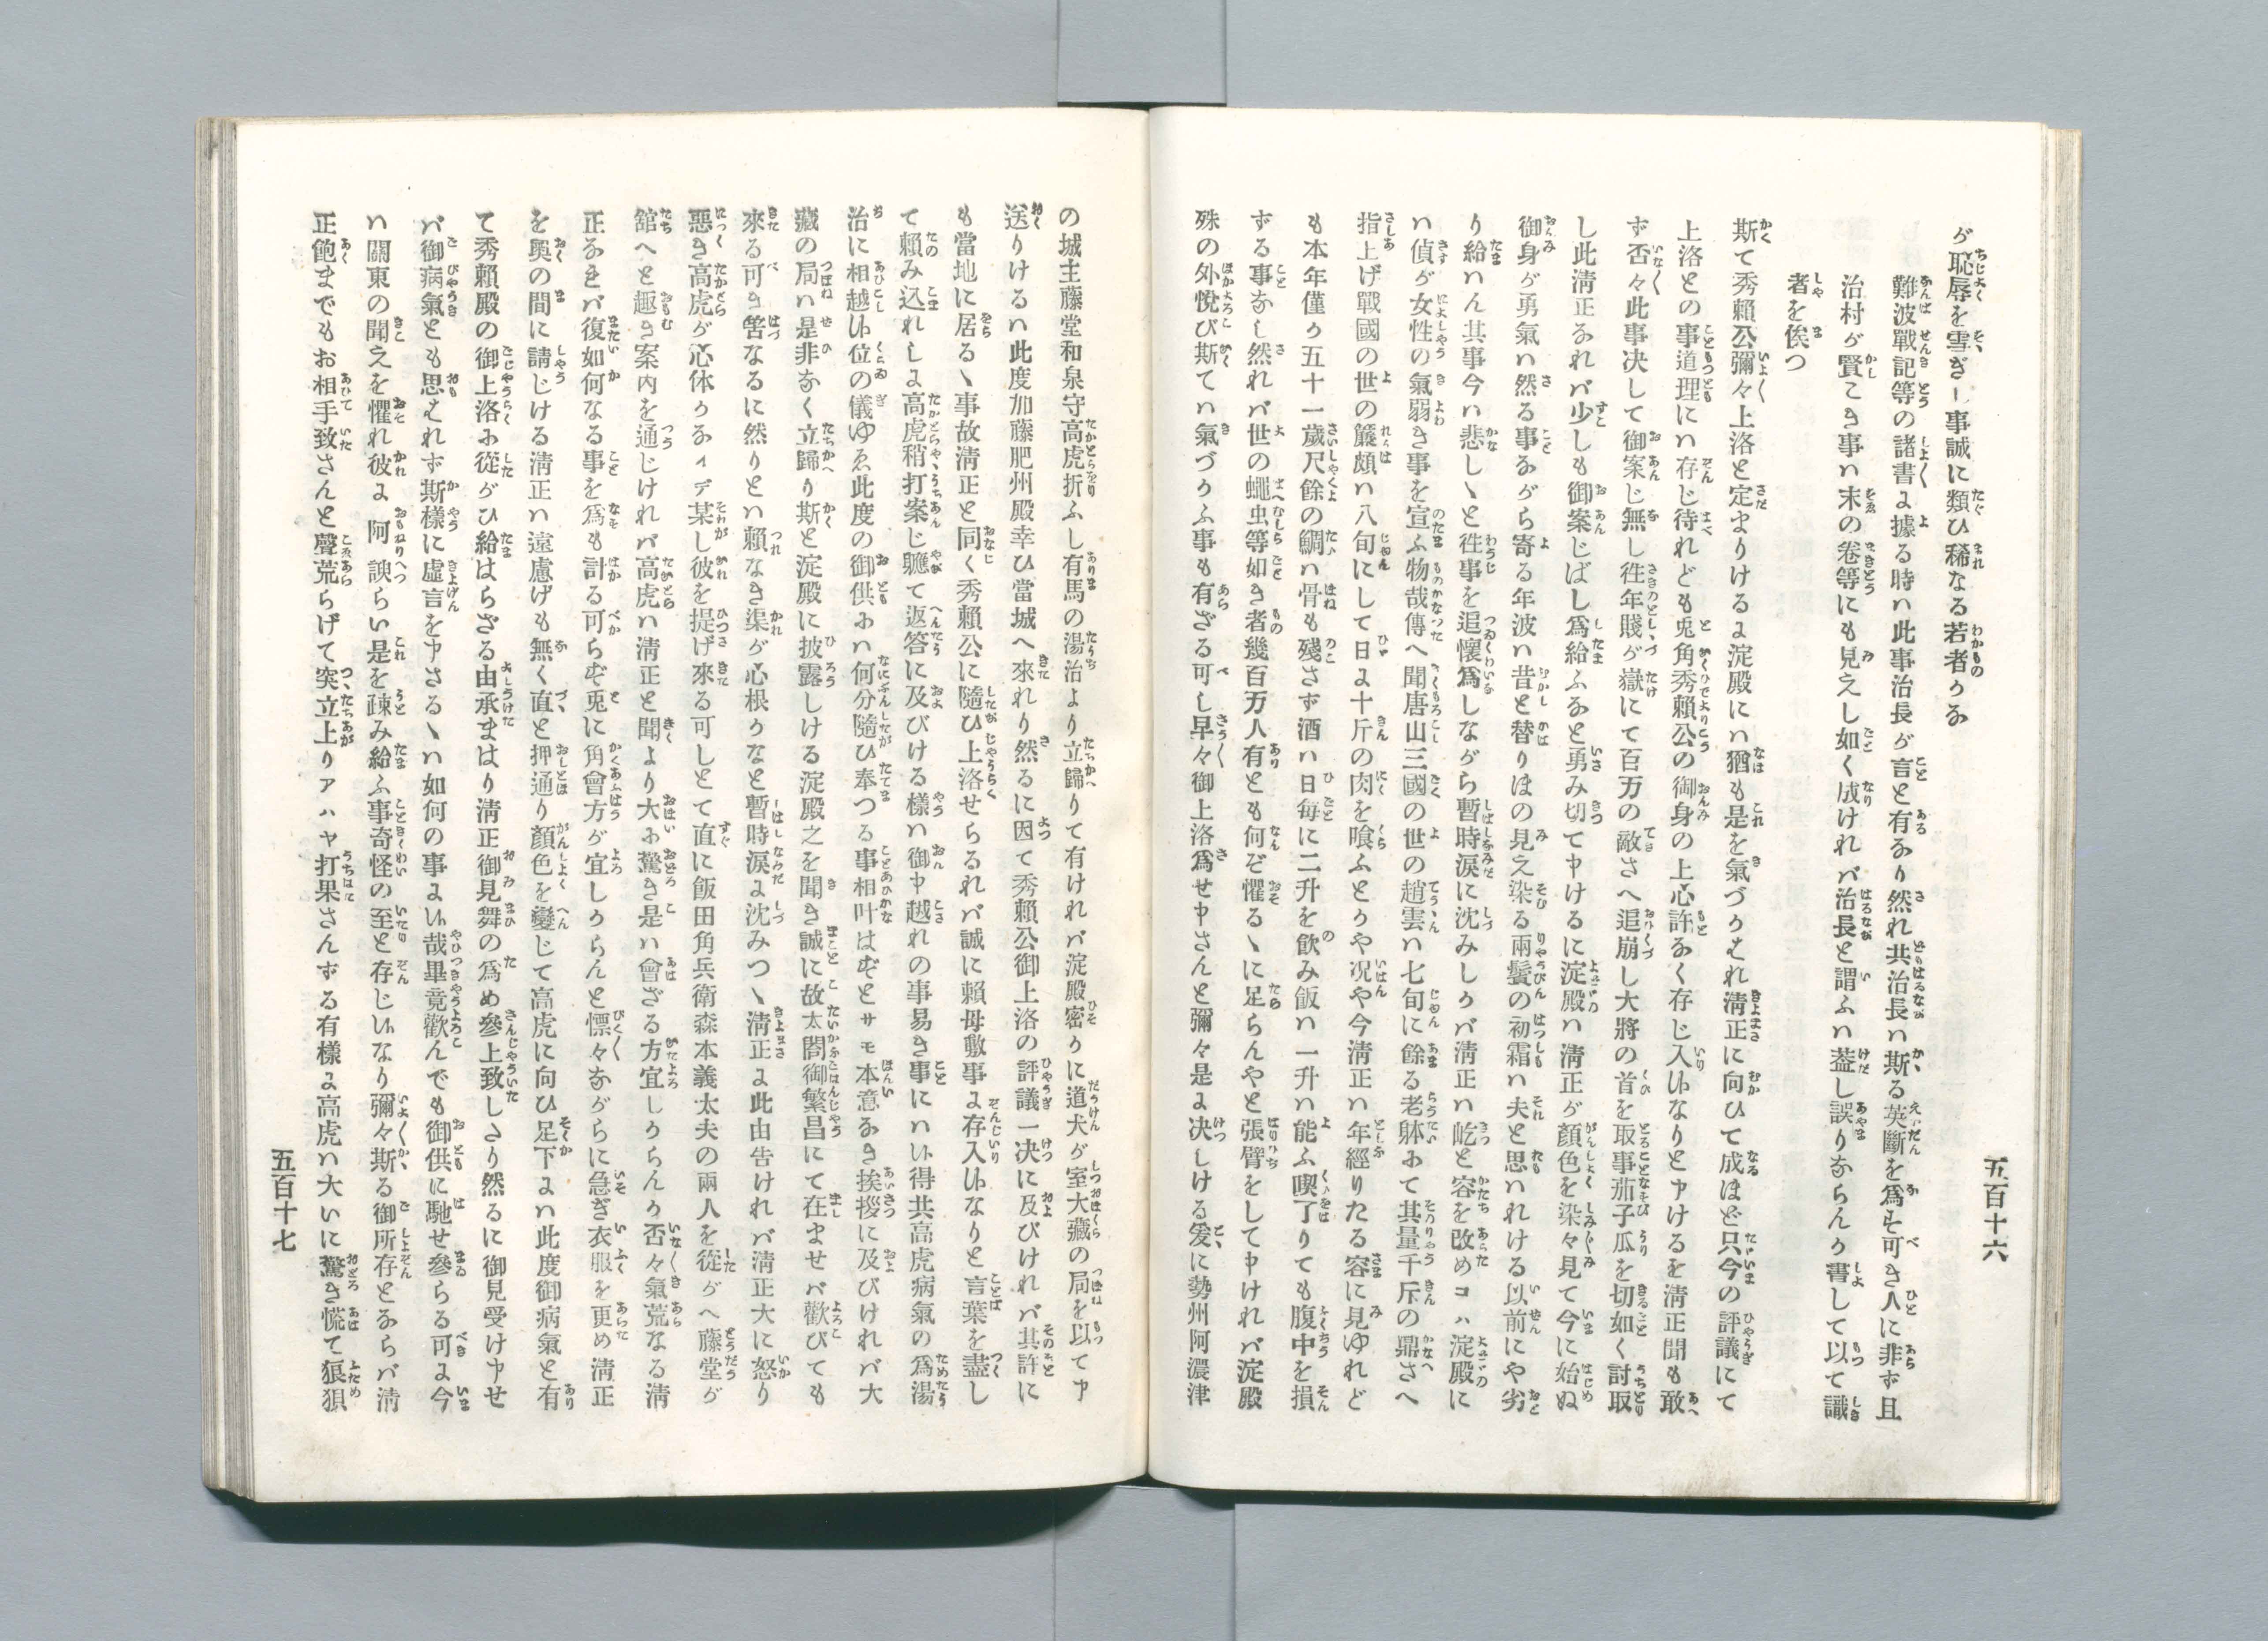 五百十六
が恥辱を雪ぎし事誠に類ひ稀なる若者かな
難波戰記等の諸書に據る時は此事治長が言と有なり然れ共治長は斯る英斷を爲す可き人に非ず且
治村が賢こき事は末の卷等にも見えし如く成けれバ治長と謂ふは葢し誤りならんか書して以て識
者を俟つ
斯て秀賴公彌々上洛と定まりけるに淀殿には猶も是を氣づかはれ淸正に向ひて成ほど只今の評議にて
上洛との事道理には存じ待れども兎角秀賴公の御身の上心許なく存じ入いなりと申けるを淸正聞も敢
ず否々此事决して御案じ無し徃年賤が嶽にて百万の敵さへ追崩し大將の首を取事茄子瓜を切如く討取
し此淸正なれバ少しも御案じばし爲給ふなと勇み切て申けるに淀殿は淸正が顏色を染々見て今に始ぬ
御身が勇氣は然る事ながら寄る年波は昔と替りほの見え染る兩鬢の初霜は夫と思はれける以前にや劣
り給はん其事今は悲しゝと徃事を追懷爲しながら暫時涙に沈みしかバ淸正は屹と容を改めコハ淀殿に
は偵が女性の氣弱き事を宣ふ物哉傳へ聞唐山三國の世の趙雲は七旬に餘る老躰にて其量千斤の鼎さへ
指上げ戰國の世の簾頗は八旬にして日に十斤の肉を喰ふとかや况や今淸正は年經りたる容に見ゆれど
も本年僅か五十一歲尺餘の鯛は骨も殘さず酒は日每に二升を飮み飯は一升は能ふ喫了りても腹中を損
ずる事なし然れバ世の蠅虫等如き者幾百万人有とも何ぞ懼るゝに足らんやと張臂をして申けれバ淀殿
殊の外悅び斯ては氣づかふ事も有ざる可し早々御上洛爲せ申さんと彌々是に决しける爰に勢州阿濃津
の城主藤堂和泉守高虎折ふし有馬の湯治より立歸りて有けれバ淀殿密かに道犬が室大藏の局を以て申
送りけるは此度加藤肥州殿幸ひ當城へ來れり然るに因て秀賴公御上洛の評議一决に及びけれバ其許に
も當地に居るゝ事故淸正と同く秀賴公に隨ひ上洛せらるれバ誠に賴母敷事に存入いなりと言葉を盡し
て賴み込れしに高虎稍打案じ軈て返答に及びける樣は御申越れの事易き事にはい得共高虎病氣の爲湯
治に相越い位の儀ゆゑ此度の御供には何分隨ひ奉つる事相叶はずとサモ本意なき挨拶に及びけれバ大
藏の局は是非なく立歸り斯と淀殿に披露しける淀殿之を聞き誠に故太閤御繁昌にて在ませバ歡びても
來る可き筈なるに然りとは賴なき渠が心根かなと暫時涙に沈みつゝ淸正に此由告けれバ淸正大に怒り
惡き高虎が心体かなイデ某し彼を提げ來る可しとて直に飯田角兵衛森本義太夫の兩人を從がへ藤堂が
舘へと趣き案內を通じけれバ高虎は淸正と聞より大に驚き是は會ざる方宜しからんか否々氣荒なる淸
正なきバ復如何なる事を爲も計る可らず兎に角會方が宜しからんと慓々ながらに急ぎ衣服を更め淸正
を奧の間に請じける淸正は遠慮げも無く直と押通り顏色を變じて高虎に向ひ足下には此度御病氣と有
て秀賴殿の御上洛に從がひ給はらざる由承まはり淸正御見舞の爲め參上致しさり然るに御見受け申せ
バ御病氣とも思はれず斯樣に虛言を申さるゝは如何の事にい哉畢竟歡んでも御供に馳せ參らる可に今
は關東の聞えを懼れ彼に阿諛らい是を疎み給ふ事奇怪の至と存じいなり彌々斯る御所存となららバ淸
正飽までもお相手致さんと聲荒らげて突立上りアハヤ打果さんずる有樣に高虎は大いに驚き慌て狼狽
五百十七